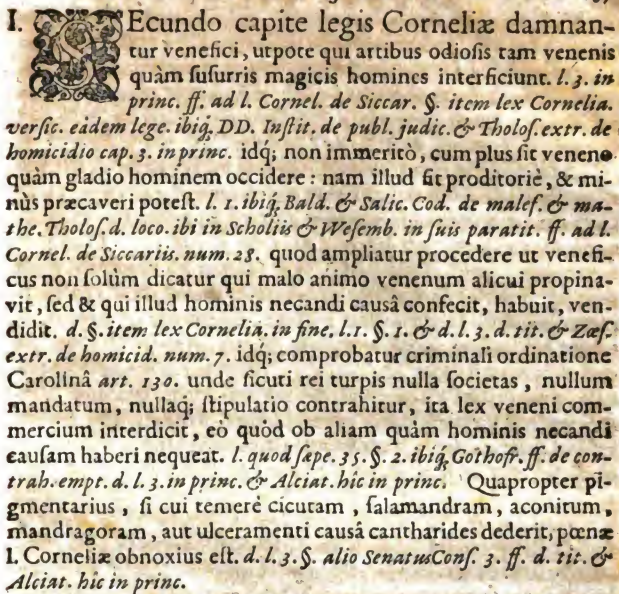 I. SEcundo capite legis Corneliæ damnan-
tur venefici, utpote qui artibus odiosis tam venenis
quàm susurris magicis homines interficiunt. l. 3. in
princ. ff. ad l. Cornel. de Siccar. §. item lex Cornelia.
versic. eâdem lege. ibiq́; DD. Instit. de publ. judic. & Tholos. extr. de
homicidio cap. 3. in princ. idq́; non immeritò, cum plus sit veneno
quàm gladio hominem occidere: nam illud fit proditoriè, & mi-
nùs præcaveri potest. l. 1. ibiq́, Bald. & Salic. Cod. de malef. & ma-
the. Tholos. d. loco. ibi in Scholiis & Wesemb. in suis paratit. ff. ad l.
Cornel. de Siccariis. num. 28. quod ampliatur procedere ut venefi-
cus non solùm dicatur qui malo animo venenum alicui propina-
vit, sed & qui illud hominis necandi causâ confecit, habuit, ven-
didit. d. §. item lex Cornelia. in fine. l. 1. §. 1. & d. l. 3. d. tit. & Zœs.
extr. de homicid. num. 7. idq́; comprobatur criminali ordinatione
Carolinâ art. 130. unde sicuti rei turpis nulla societas, nullum
mandatum, nullaq́; stipulatio contrahitur, ita lex veneni com-
mercium interdicit, eò quòd ob aliam quàm hominis necandi
causam haberi nequeat. l. quod sæpe. 35. §. 2. ibiq́, Gothofr. ff. de con-
trah. empt. d. l. 3. in princ. & Alciat. hîc in princ. Quapropter pi-
gmentarius, si cui temerè cicutam, salamandram, aconitum,
mandragoram, aut ulceramenti causâ cantharides dederit, pœnæ
l. Corneliæ obnoxius est. d. l. 3. §. alio SenatusCons. 3. ff. d. tit. &
Alciat. hîc in princ.